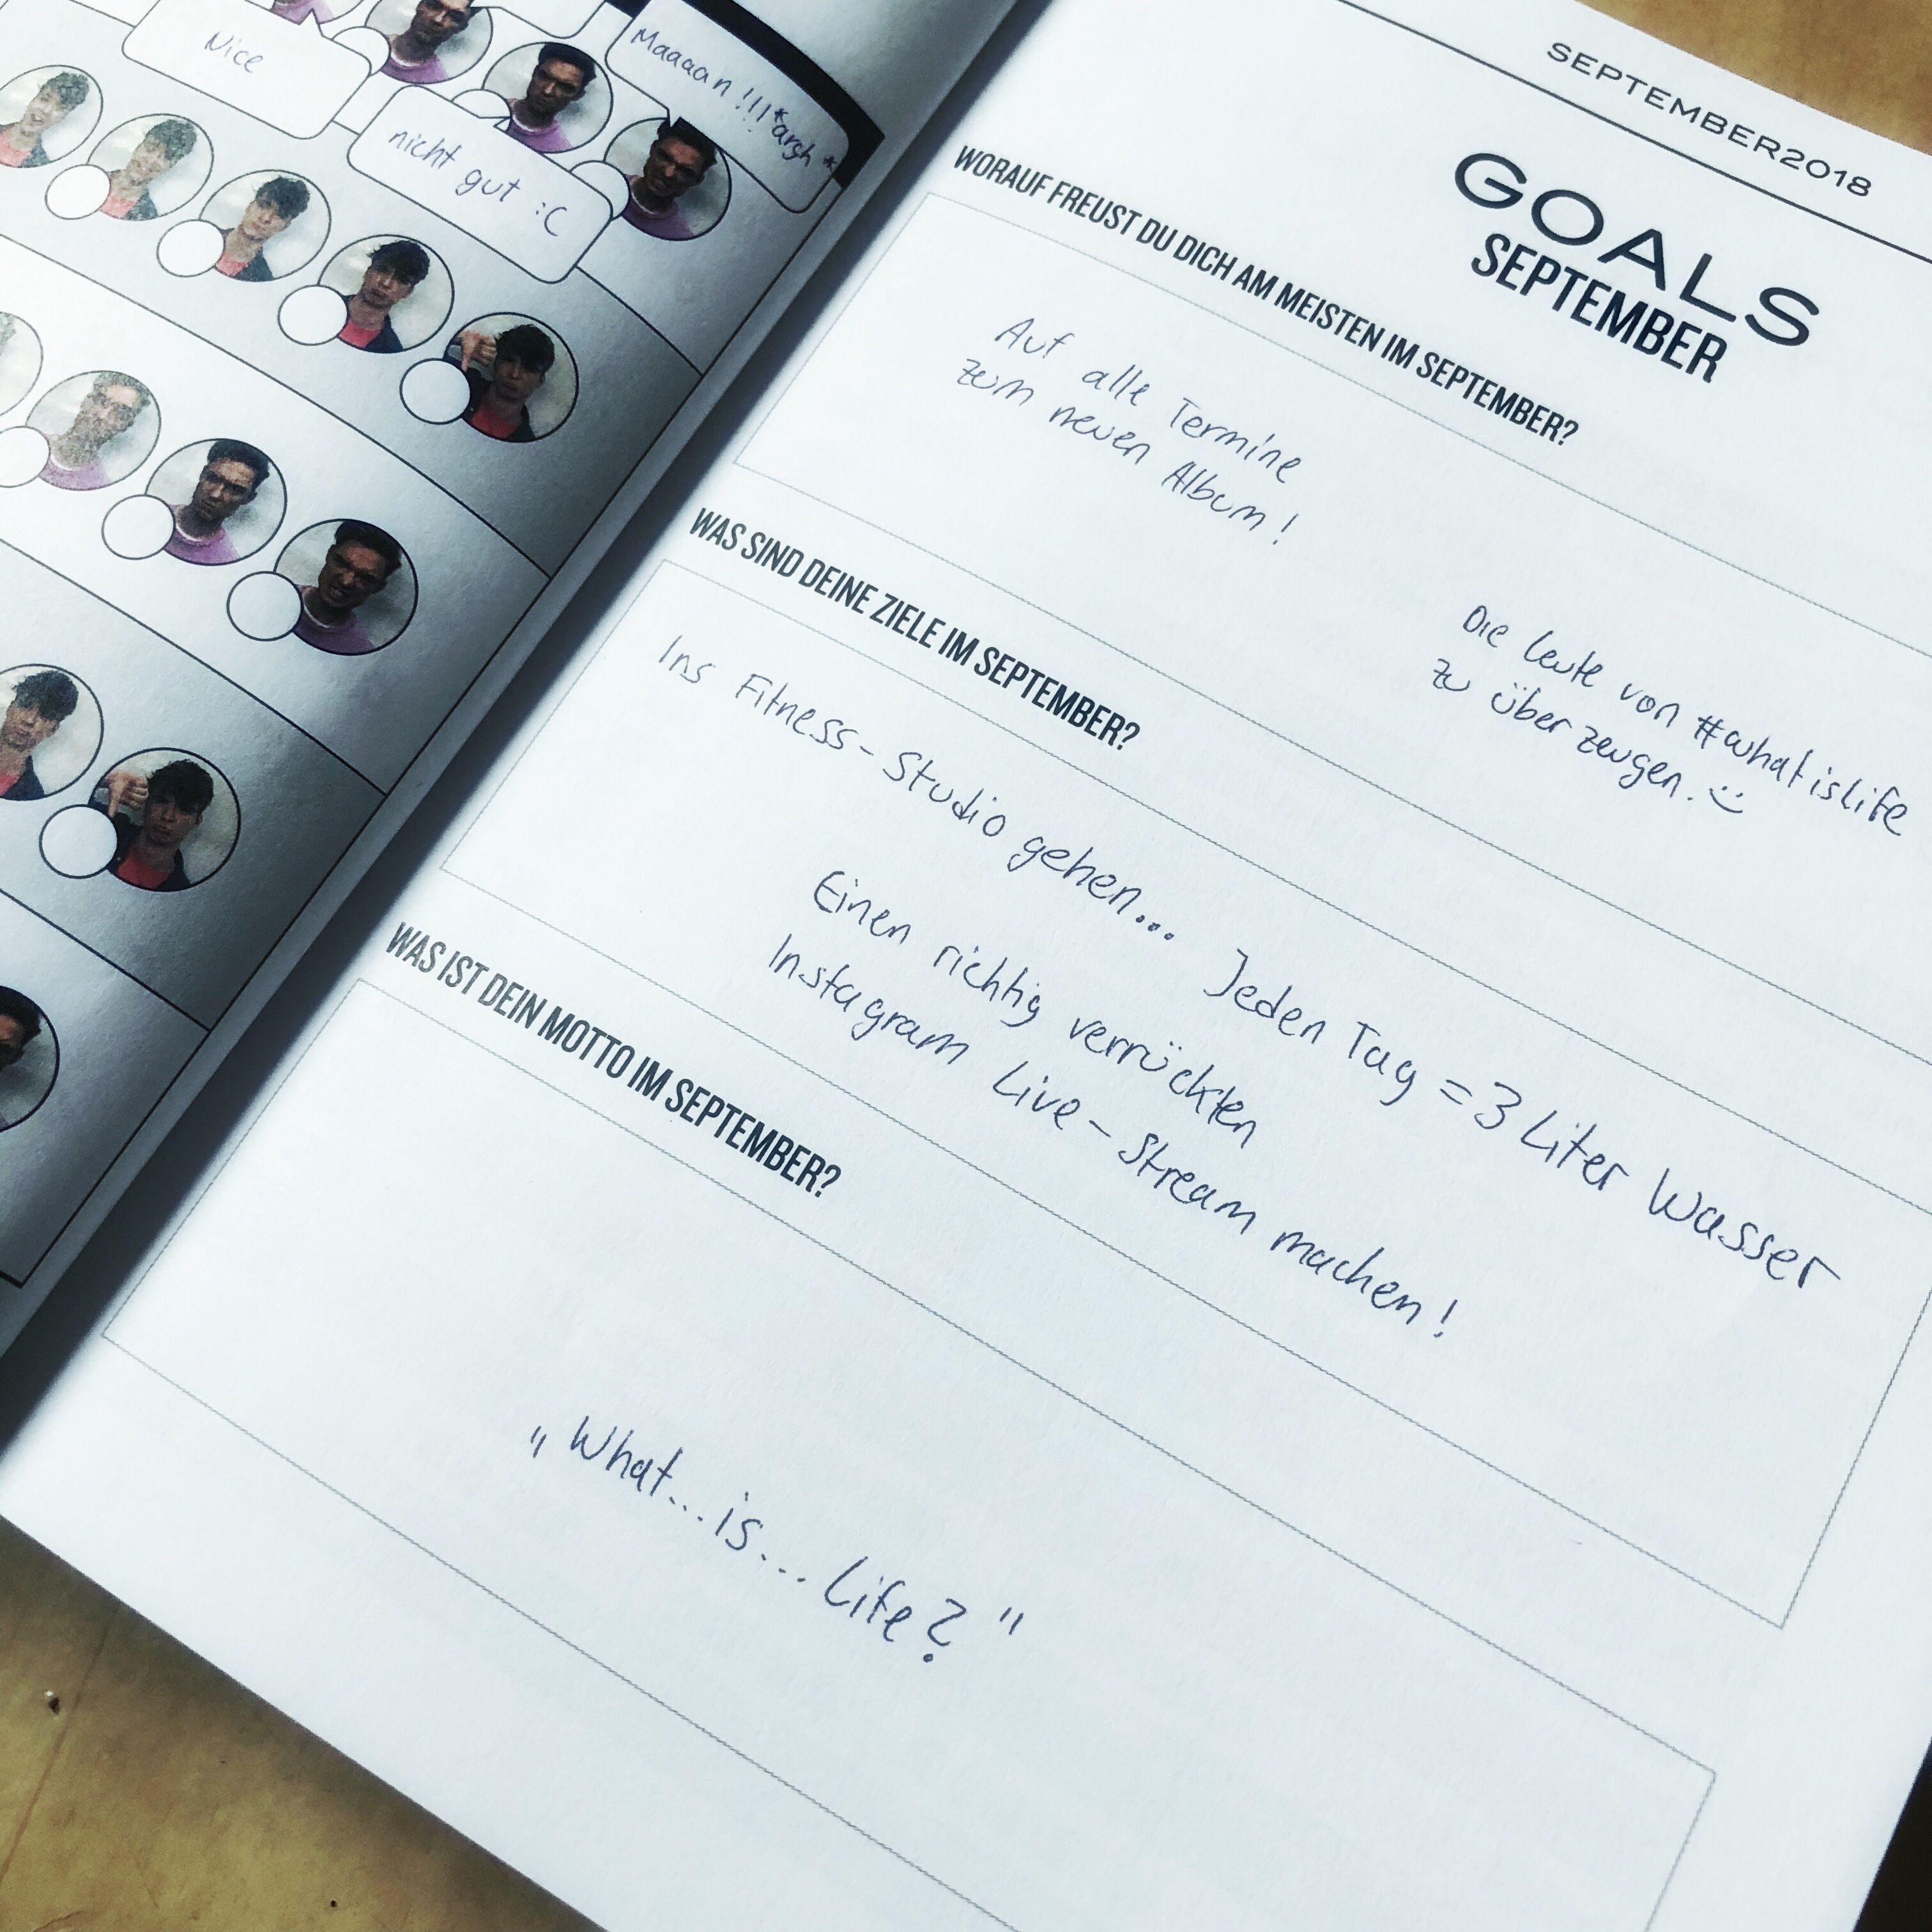 Nice
Maaaan!!! *argh*
nicht gut :C
SEPTEMBER2018
GOALS
SEPTEMBER
WORAUF FREUST DU DICH AM MEISTEN IM SEPTEMBER?
Auf alle Termine
zum neuen Album!
Die Leute von #whatislife
zu überzeugen. :)
WAS SIND DEINE ZIELE IM SEPTEMBER?
Ins Fitness-Studio gehen... Jeden Tag = 3 Liter Wasser
Einen richtig verrückten
Instagram Live-Stream machen!
WAS IST DEIN MOTTO IM SEPTEMBER?
"What... is... Life?"